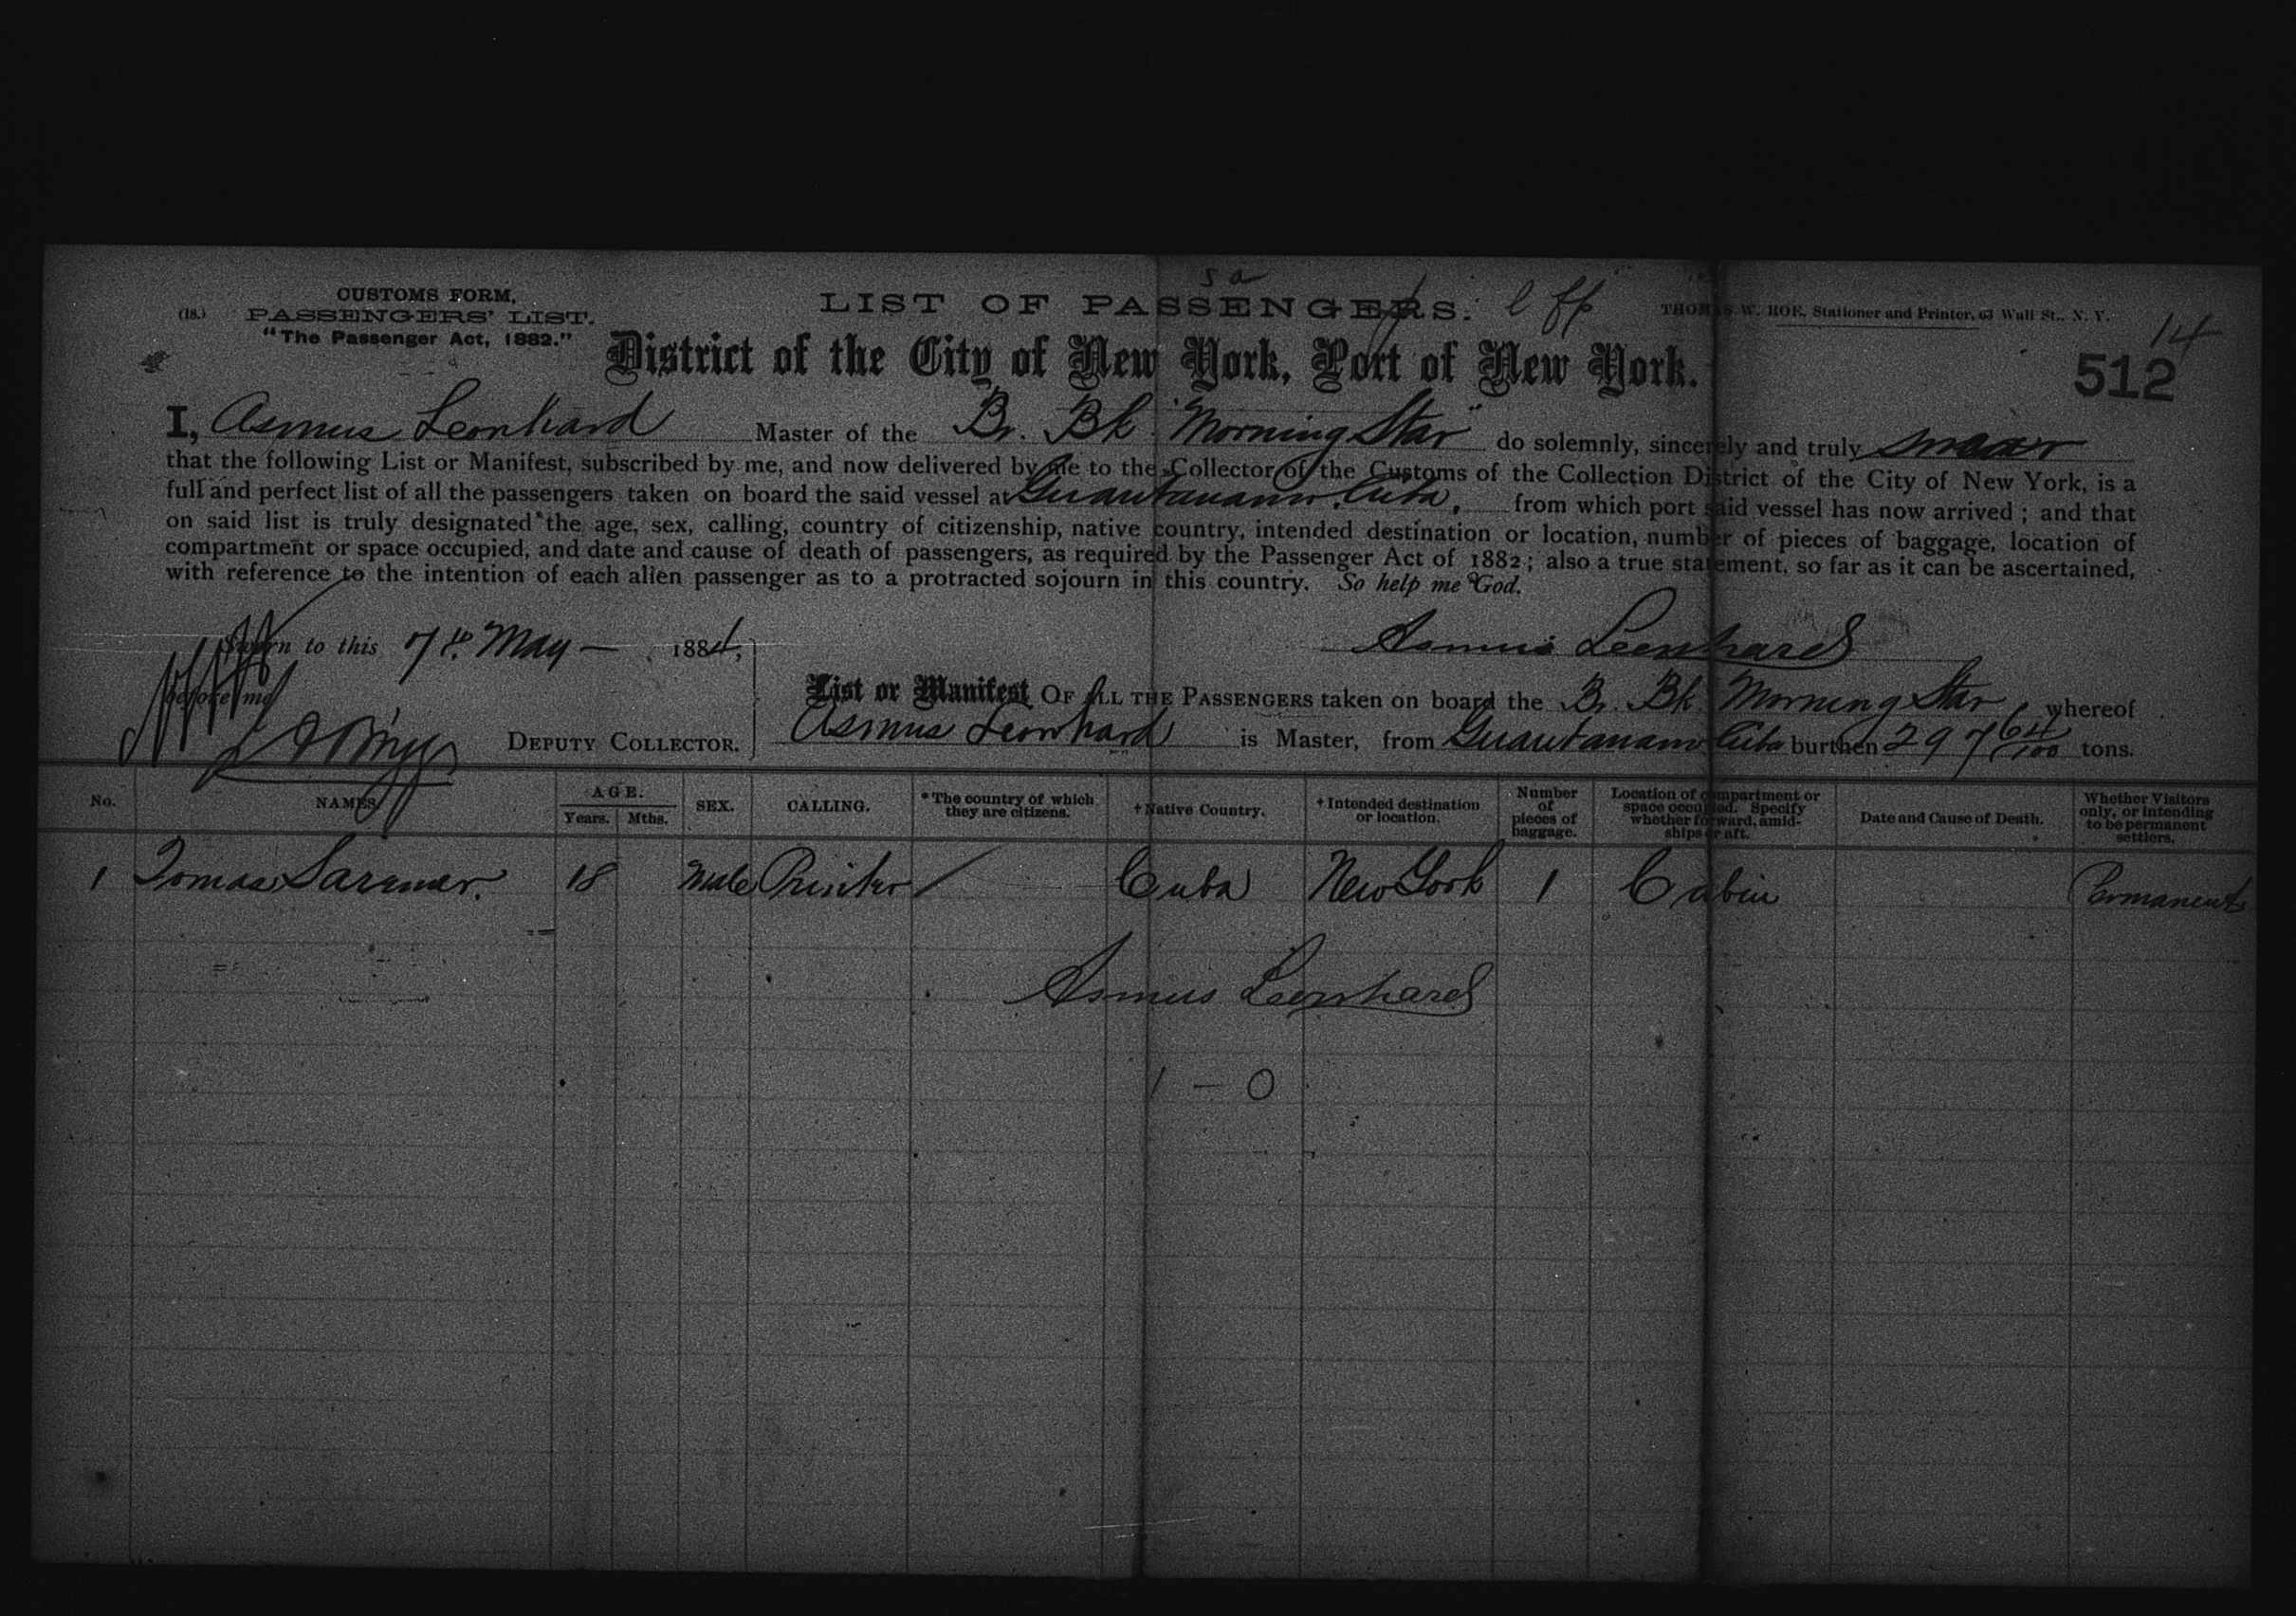 CUSTOMS FORM,
(18.) PASSENGERS' LIST.
"The Passenger Act, 1882."
LIST OF PASSENGERS.
THOMAS W. ROE, Stationer and Printer, 63 Wall St., N. Y.
14
512
District of the City of New York, Port of New York.
I, Asmus Leonhard Master of the Br. Bk "Morning Star" do solemnly, sincerely and truly swear
that the following List or Manifest, subscribed by me, and now delivered by me to the Collector of the Customs of the Collection District of the City of New York, is a
full and perfect list of all the passengers taken on board the said vessel at Guantanamo Cuba, from which port said vessel has now arrived; and that
on said list is truly designated the age, sex, calling, country of citizenship, native country, intended destination or location, number of pieces of baggage, location of
compartment or space occupied, and date and cause of death of passengers, as required by the Passenger Act of 1882; also a true statement, so far as it can be ascertained,
with reference to the intention of each alien passenger as to a protracted sojourn in this country. So help me God.
Sworn to this 7th May — 1884,
Asmus Leonhard
before me
List or Manifest OF ALL THE PASSENGERS taken on board the Br. Bk Morning Star, whereof
DEPUTY COLLECTOR.
Asmus Leonhard is Master, from Guantanamo Cuba burthen 297 64/100 tons.
No. NAMES. AGE. Years. Mths. SEX. CALLING. *The country of which they are citizens. †Native Country. †Intended destination or location. Number of pieces of baggage. Location of compartment or space occupied. Specify whether forward, amidships or aft. Date and Cause of Death. Whether Visitors only, or intending to be permanent settlers.
1 Tomas 18 Male Printer / Cuba New York 1 Cabin Permanent
Asmus Leonhard
1 — 0